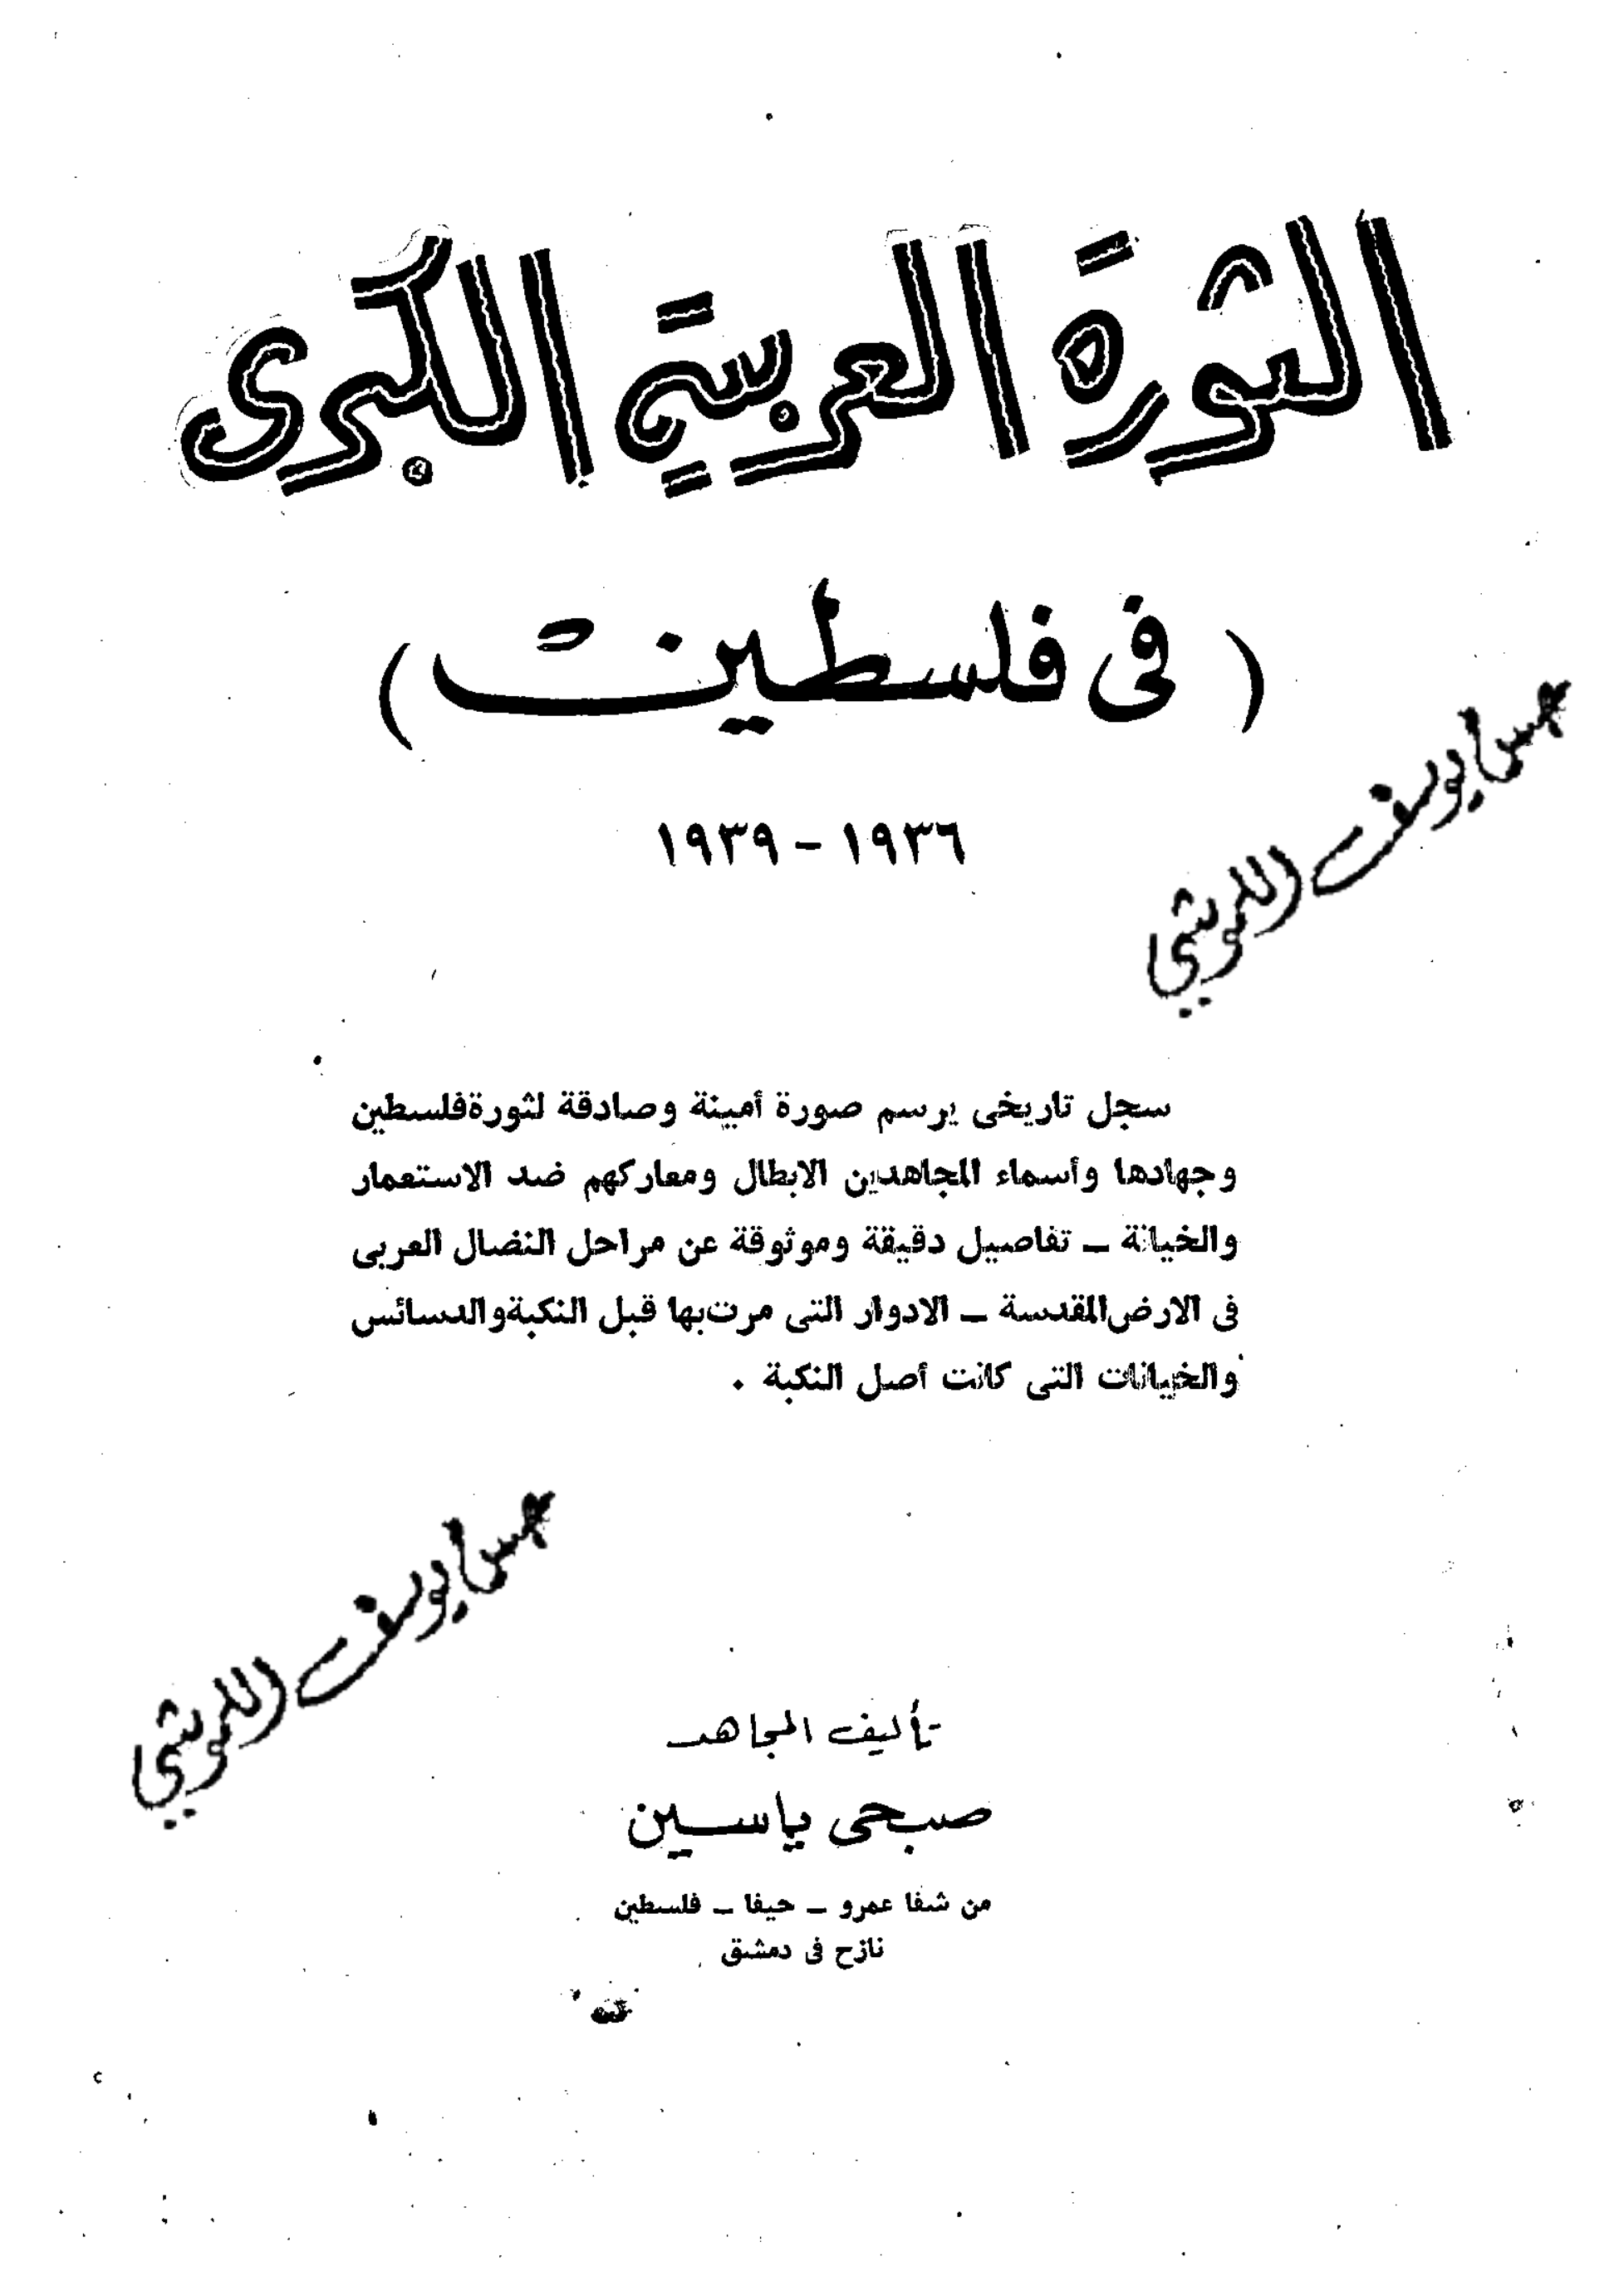 الثورة العربية الكبرى
( فى فلسطين )
١٩٣٦ - ١٩٣٩
سجل تاريخى يرسم صورة أمينة وصادقة لثورة فلسطين
وجهادها وأسماء المجاهدين الابطال ومعاركهم ضد الاستعمار
والخيانة ــ تفاصيل دقيقة وموثوقة عن مراحل النضال العربى
فى الارض المقدسة ــ الادوار التى مرت بها قبل النكبة والدسائس
والخيانات التى كانت أصل النكبة .
تأليف المجاهد
صبحى ياسين
من شفا عمرو ــ حيفا ــ فلسطين
نازح فى دمشق